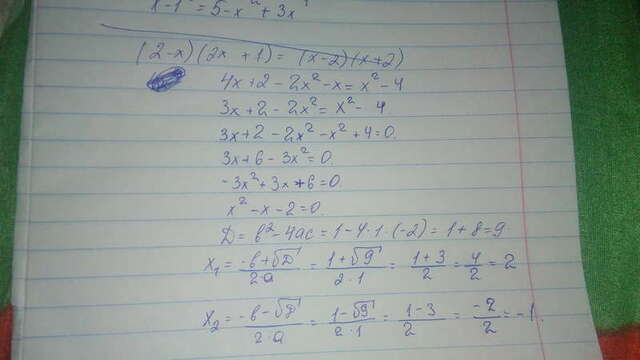 x-1 = 5-x² + 3x
(2-x)(2x +1) = (x-2)(x+2)
4x+2-2x²-x = x²-4
3x+2-2x² = x²-4
3x+2-2x²-x²+4=0.
3x+6-3x²=0.
-3x²+3x+6=0.
x²-x-2=0.
D = b²-4ac = 1-4·1·(-2) = 1+8=9
x₁ = (-b+√D)/(2·a) = (1+√9)/(2·1) = (1+3)/2 = 4/2 = 2
x₂ = (-b-√D)/(2·a) = (1-√9)/(2·1) = (1-3)/2 = -2/2 = -1.